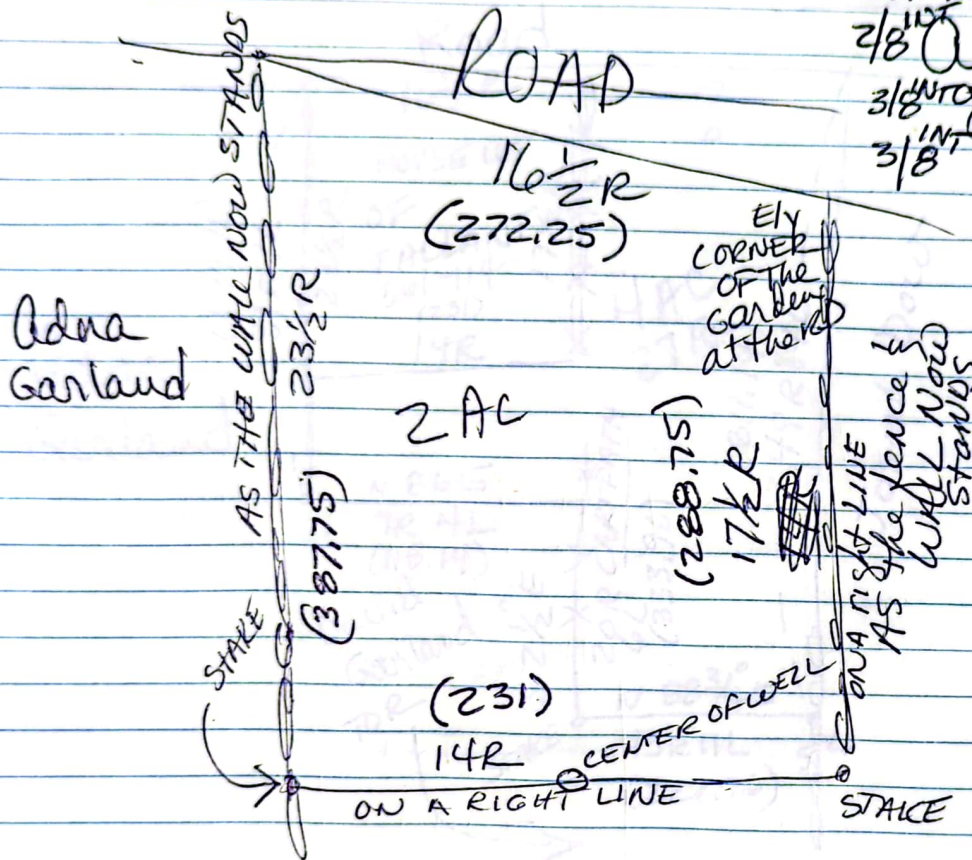 ROAD
2/8 INT
3/8 INTO
3/8 INT
16 1/2 R
(272.25)
Ely
CORNER
OF The
Garden
at the
AS THE WALL NOW STANDS
23 1/2 R
(387.75)
Adna
Garland
2 AC
(288.75)
17 1/2 R
ON A right LINE
AS the fence &
WALL NOW
Stands
STAKE
(231)
14R
CENTER OF WELL
ON A RIGHT LINE
STAKE